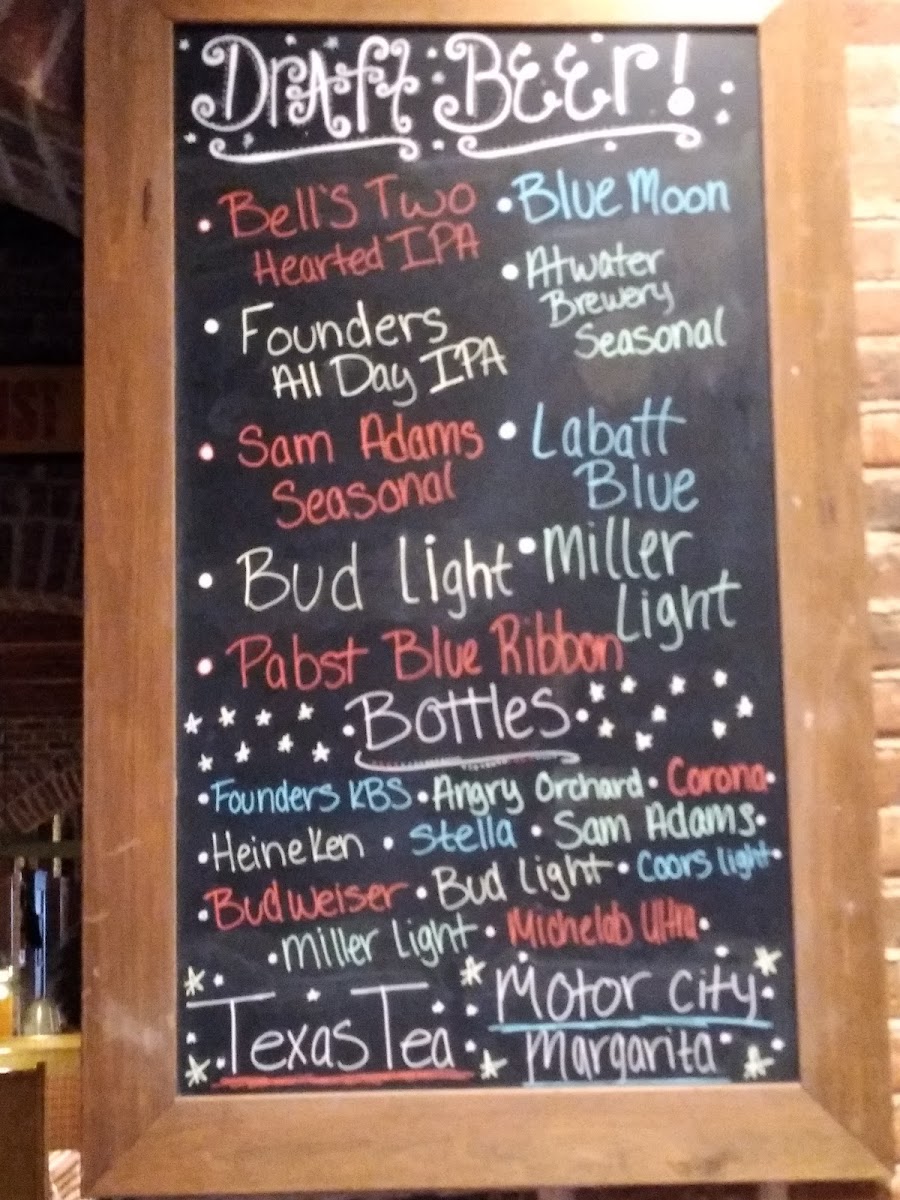 Draft Beer!
• Bell's Two
Hearted IPA
• Founders
All Day IPA
• Sam Adams
Seasonal
• Bud light
• Pabst Blue Ribbon
• Blue Moon
• Atwater
Brewery
Seasonal
• Labatt
Blue
• Miller
Light
• Bottles •
• Founders KBS • Angry Orchard • Corona •
• Heineken • Stella • Sam Adams •
• Budweiser • Bud Light • Coors light •
• Miller Light • Michelob Ultra •
Texas Tea
Motor City
Margarita